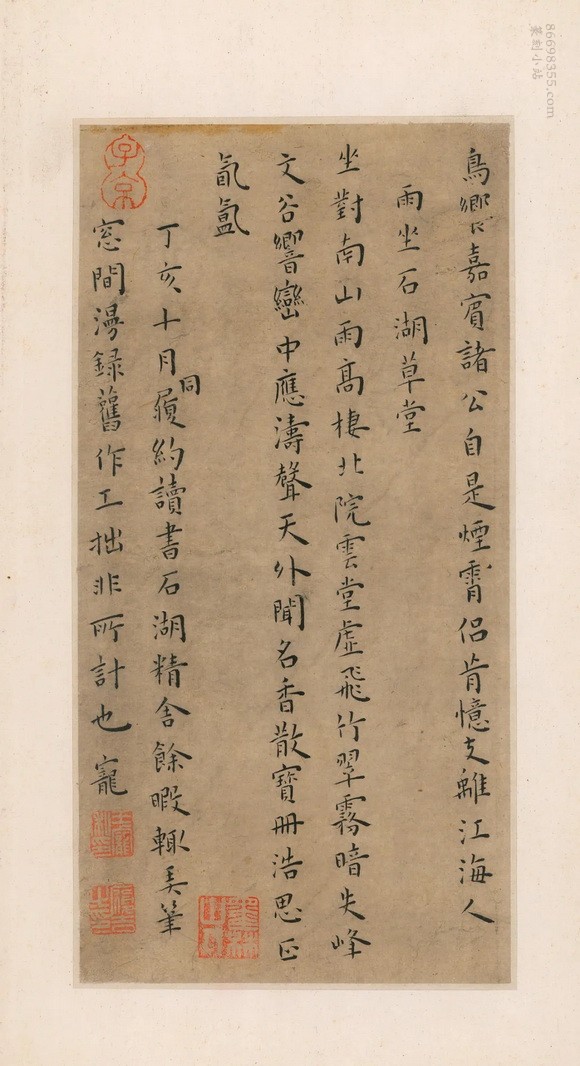 鳥響嘉賓諸公自是煙霄侶肯憶支離江海人
雨坐石湖草堂
坐對南山雨高棲北院雲堂虛飛竹翠霧暗失峰
文谷響巒中應濤聲天外聞名香散寶冊浩思正
氤氳
丁亥十月同履約讀書石湖精舍餘暇輒弄筆
窓間漫錄舊作工拙非所計也寵
子京
86698355.com
篆刻小站